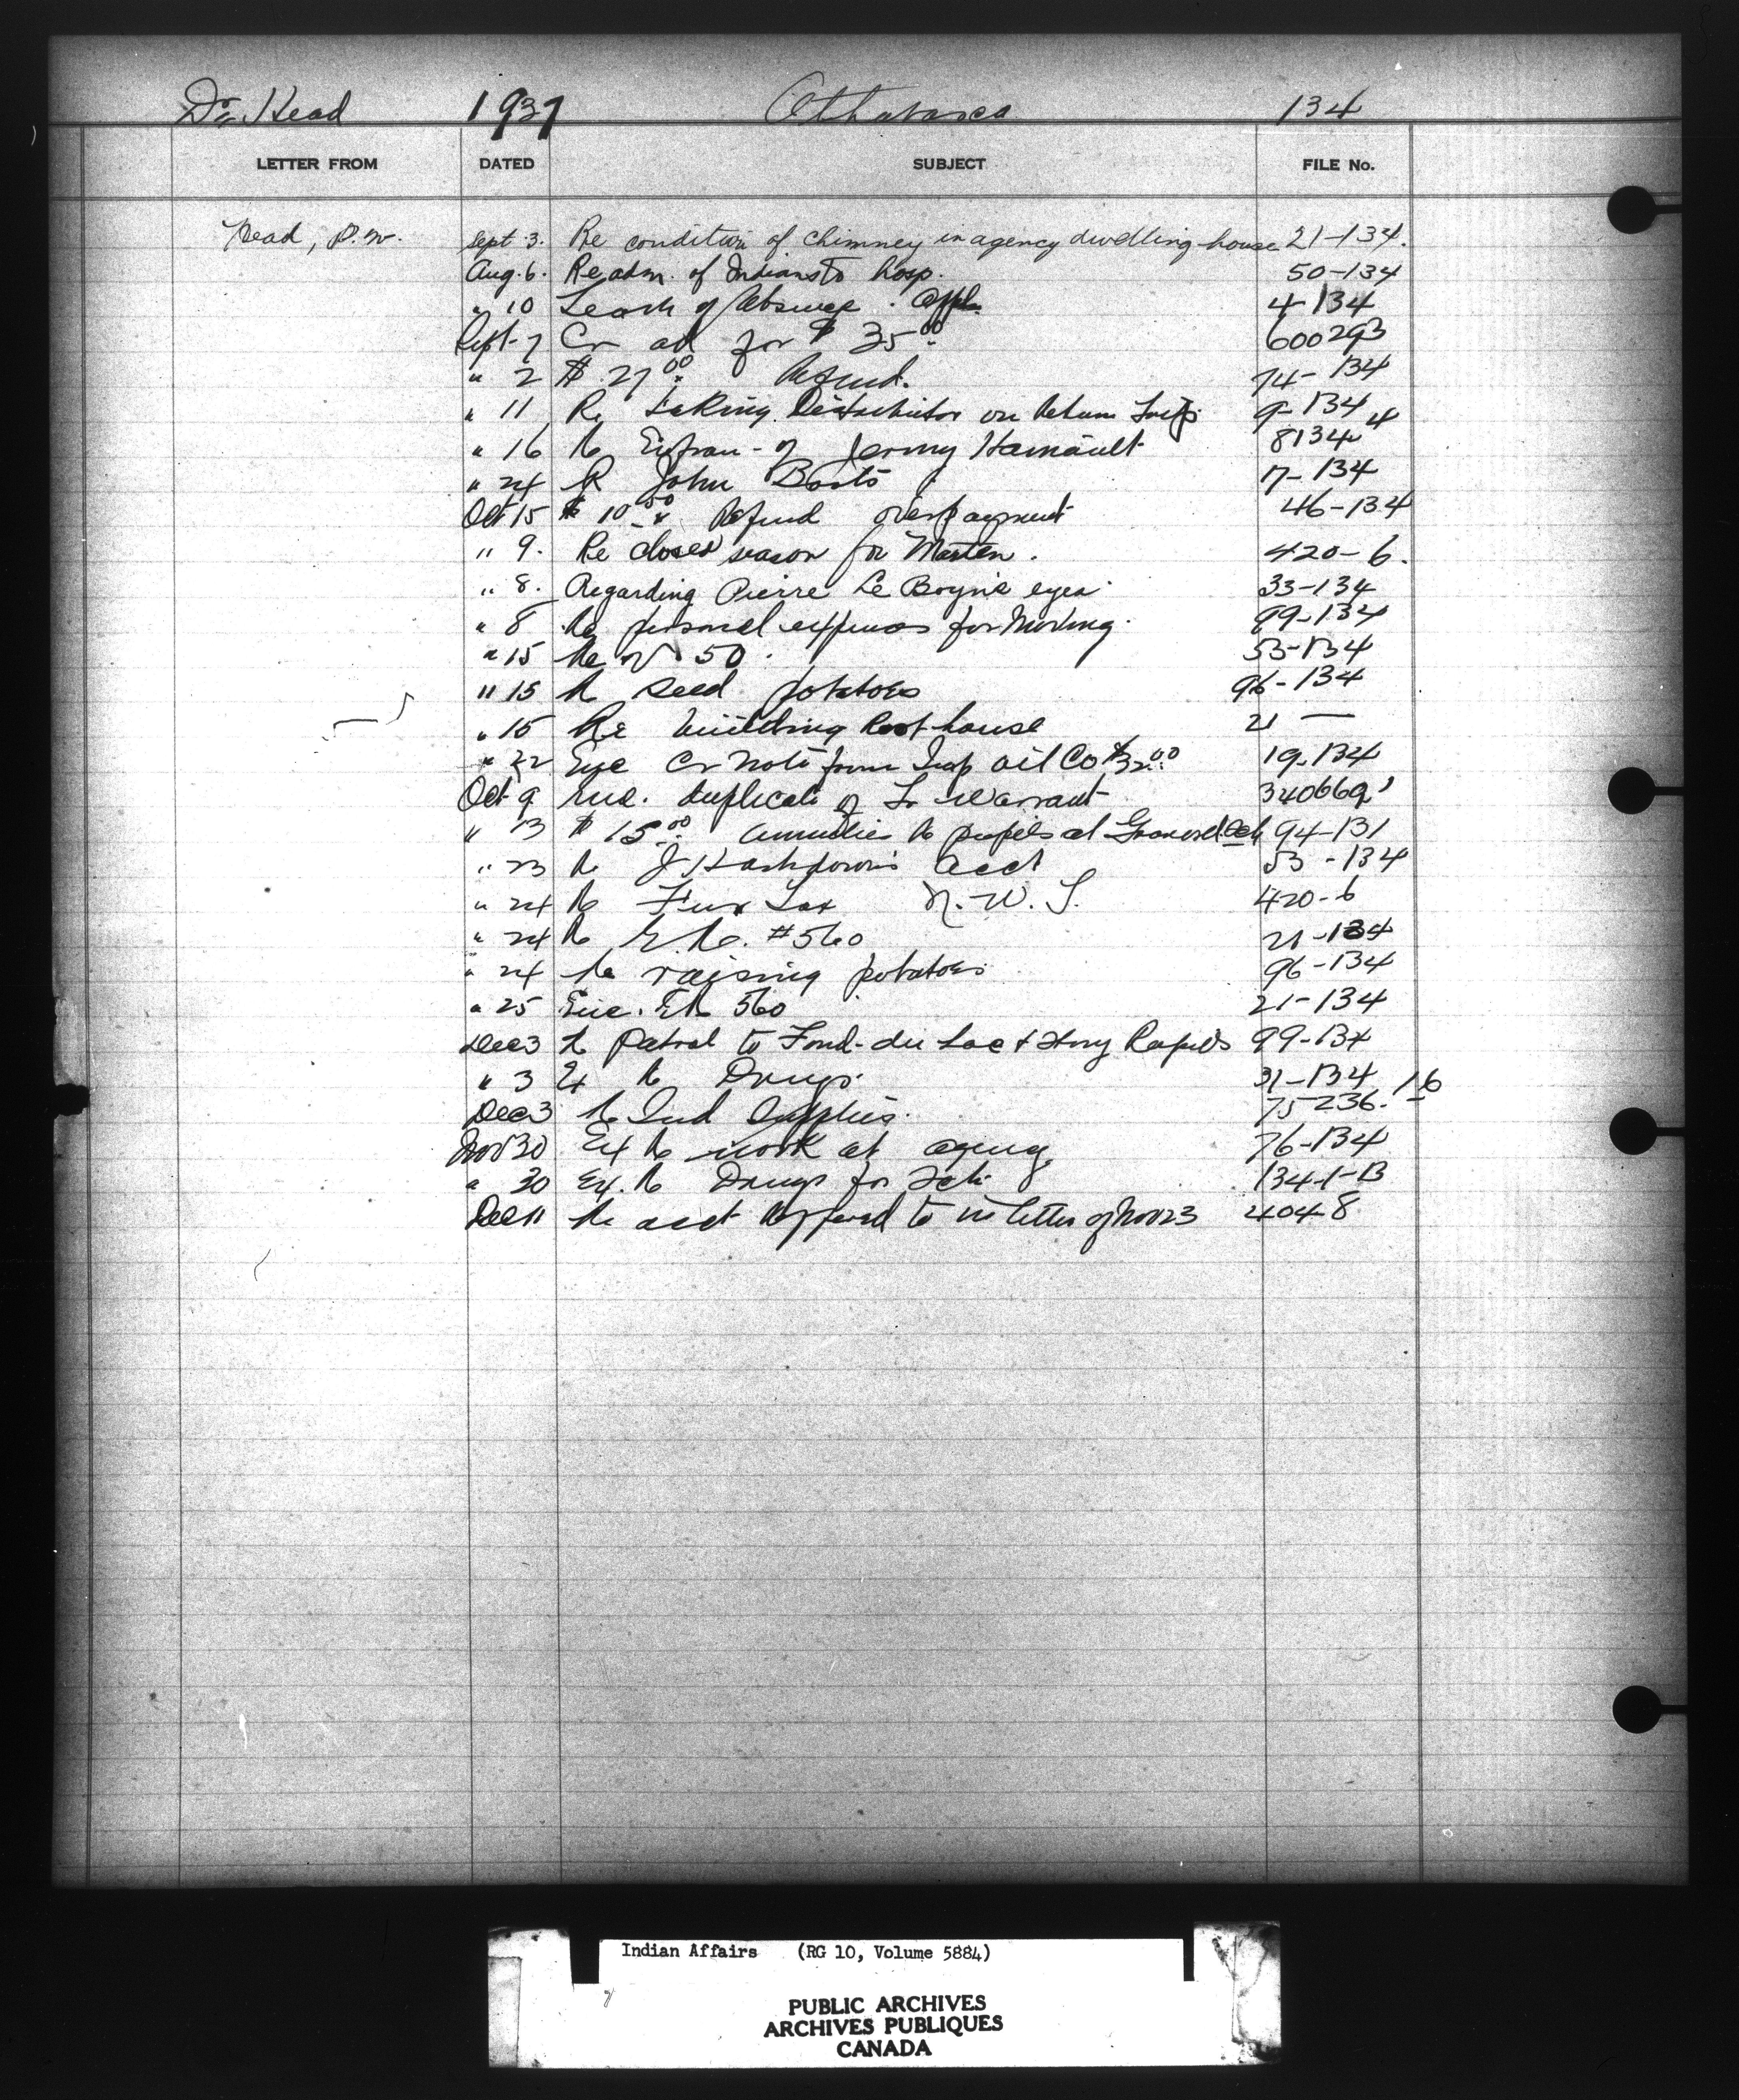 Dr. Head 1937 Athabasca 134
LETTER FROM DATED SUBJECT FILE No.
Head, P.W. Sept 3. Re condition of chimney in agency dwelling house 21-134.
Aug. 6. Re adm. of Indians to hosp. 50-134
" 10 Leave of Absence. Appl. 4-134
Sept-7 Cr ad for $35.00 600293
" 2 $27.00 Refund. 74-134
" 11 Re taking on Return Trip 9-134
" 16 Re of Jenny 8134
" 24 R John 17-134
Oct 15 $10.50 Refund overpayment 46-134
" 9. Re closed season for Marten. 420-6.
" 8. Regarding Pierre Le eyes. 33-134
" 8 Re personal expenses for Moving. 99-134
" 15 Re 50. 53-134
" 15 Re seed potatoes 96-134
" 15 Re building Root house 21 —
" 22 Enc Cr Note from Imp Oil Co $32.00 19-134
Oct 9 Enc. duplicate of Tr Warrant 340669
" 13 $15.00 annuities to pupils at Grouard Sch 94-131
" 23 Re J Acct 53-134
" 24 Re Fur Tax N.W.T. 420-6
" 24 Re E.R. #560 21-134
" 24 Re raising potatoes 96-134
" 25 Enc. E R 560 21-134
Dec 3 Re Patrol to Fond-du Lac & Stony Rapids 99-134
" 3 Ex Re Drugs. 31-134
Dec 3 Re Ind Supplies. 75236-1-6
Nov 30 Ex Re work at agency 76-134
" 30 Ex. Re Drugs for Sch. 134-1-13
Dec 11 Re acct Referred to in letter of Nov 23 4048
Indian Affairs (RG 10, Volume 5884)
PUBLIC ARCHIVES
ARCHIVES PUBLIQUES
CANADA